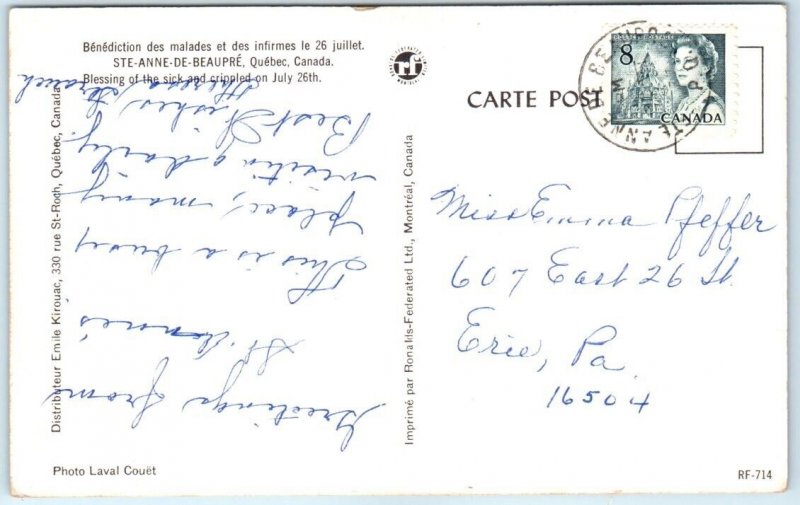 Bénédiction des malades et des infirmes le 26 juillet.
STE-ANNE-DE-BEAUPRÉ, Québec, Canada.
Blessing of the sick and crippled on July 26th.
Greetings from
St. Anne's
This is a busy
place, many
visit a daily.
Best Wishes,
Theresa
Distributeur Emile Kirouac, 330 rue St-Roch, Québec, Canada
Imprimé par Ronalds-Federated Ltd., Montréal, Canada
Photo Laval Couët
CARTE POST
8
POSTES POSTAGE
CANADA
STE ANNE DE BEAUPRE
Miss Emma Pfeffer
607 East 26 St.
Erie, Pa.
16504
RF-714